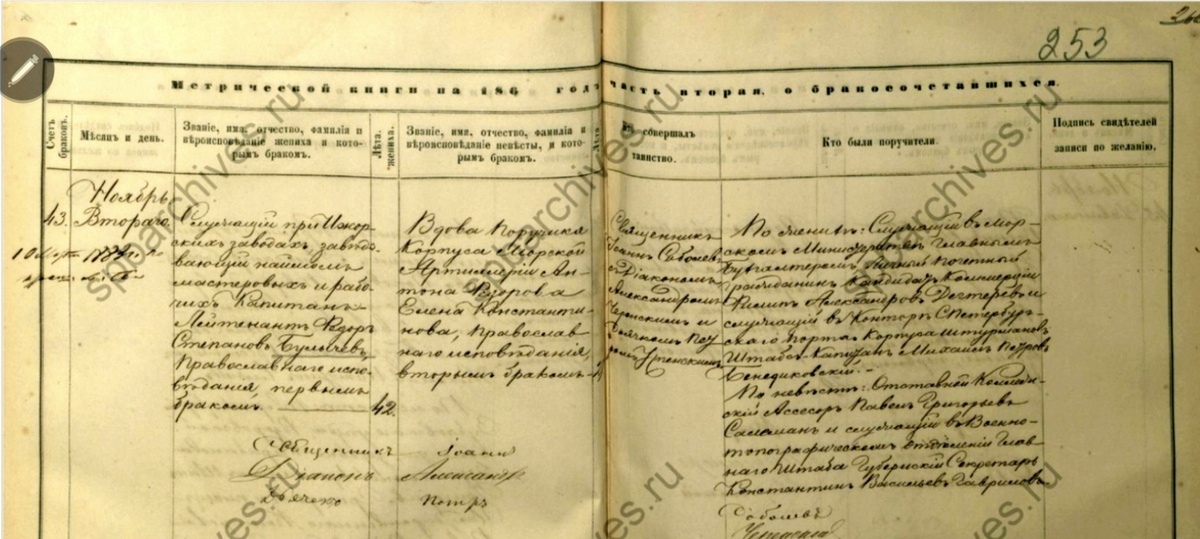 253
Метрической книги на 186 годъ часть вторая, о бракосочетавшихся.
Счетъ браковъ.
Мѣсяцъ и день.
Званіе, имя, отчество, фамилія и
вѣроисповѣданіе жениха и кото-
рымъ бракомъ.
Лѣта жениха.
Званіе, имя, отчество, фамилія и
вѣроисповѣданіе невѣсты, и кото-
рымъ бракомъ.
Лѣта
Кто совершалъ
таинство.
Кто были поручители.
Подпись свидѣтелей
записи по желанію.
Ноябрь
43. Втораго
Служащій при Ижор-
скихъ заводахъ, завѣды-
вающій наймомъ
мастеровыхъ и рабо-
чихъ Капитанъ-
Лейтенантъ Ѳедоръ
Степановъ Булычевъ,
Православнаго испо-
вѣданія, первымъ
бракомъ.
42.
Вдова Поручика
Корпуса Морской
Артиллеріи Ан-
тона Ѳедорова
Елена Константи-
нова, Православ
наго исповѣданія,
вторымъ бракомъ
Священникъ
Іоаннъ Соболевъ
съ Діакономъ
Александромъ
и
Дьячкомъ Пет
ромъ Успенскимъ
По женихѣ: Служащій въ Мор-
скомъ Министерствѣ Главнымъ
Бухгалтеромъ Личный Почетный
Гражданинъ Кандидатъ Коммерціи
Филипъ Александровъ Дехтеревъ и
служащій въ Конторѣ С.Петербур-
скаго порта Корпуса Штурмановъ
Штабсъ-Капитанъ Михаилъ Петровъ
По невѣстѣ: Отставной Коллеж-
скій Ассесоръ Павелъ Григорьевъ
Саломанъ и служащій въ Военно-
топографическомъ отдѣленіи Глав
наго Штаба Губернскій Секретарь
Константинъ Васильевъ Гавриловъ
Священникъ Іоаннъ Соболевъ
Діаконъ Александръ
Дьячекъ Петръ
spbarchives.ru